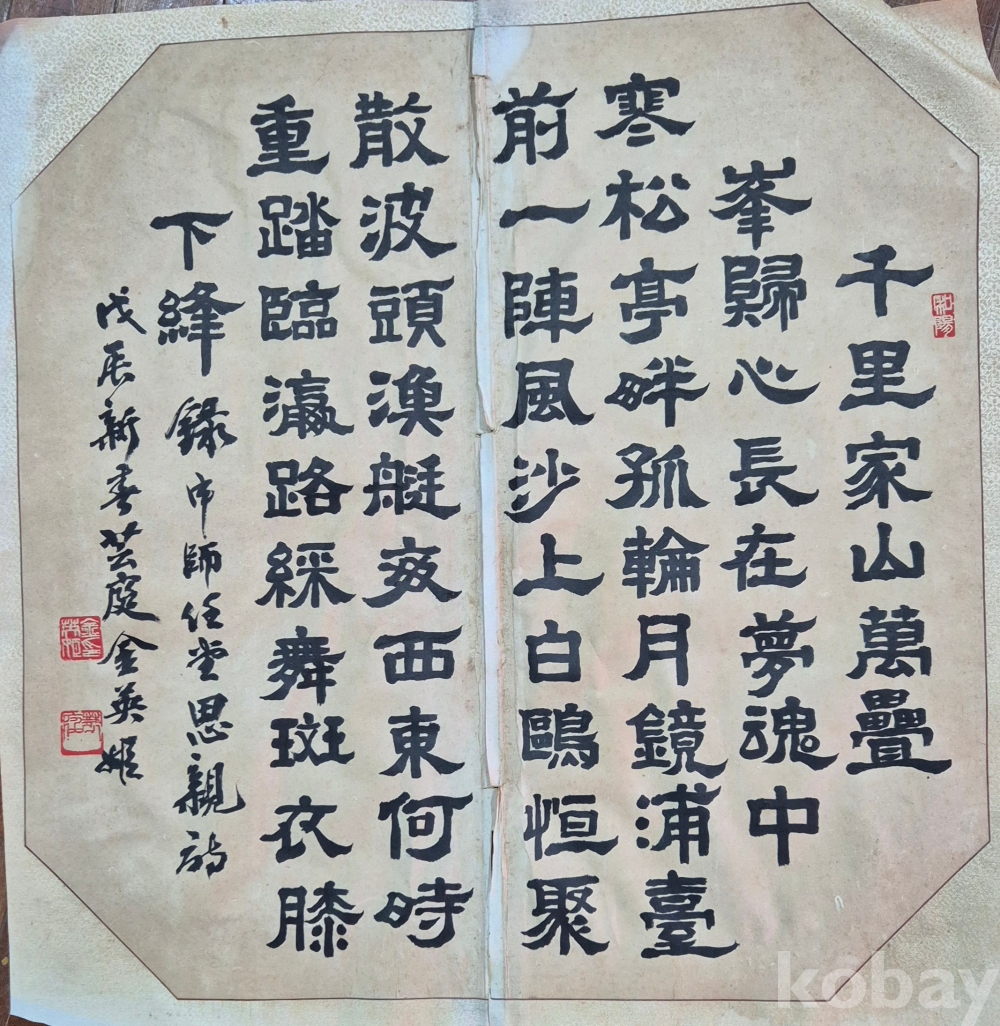 千里家山萬疊
峯歸心長在夢魂中
寒松亭畔孤輪月鏡浦臺
前一陣風沙上白鷗恒聚
散波頭漁艇每西東何時
重踏臨瀛路綵舞斑衣膝
下綘 錄申師任堂思親詩
戊辰新春芸庭金英姬
kobay